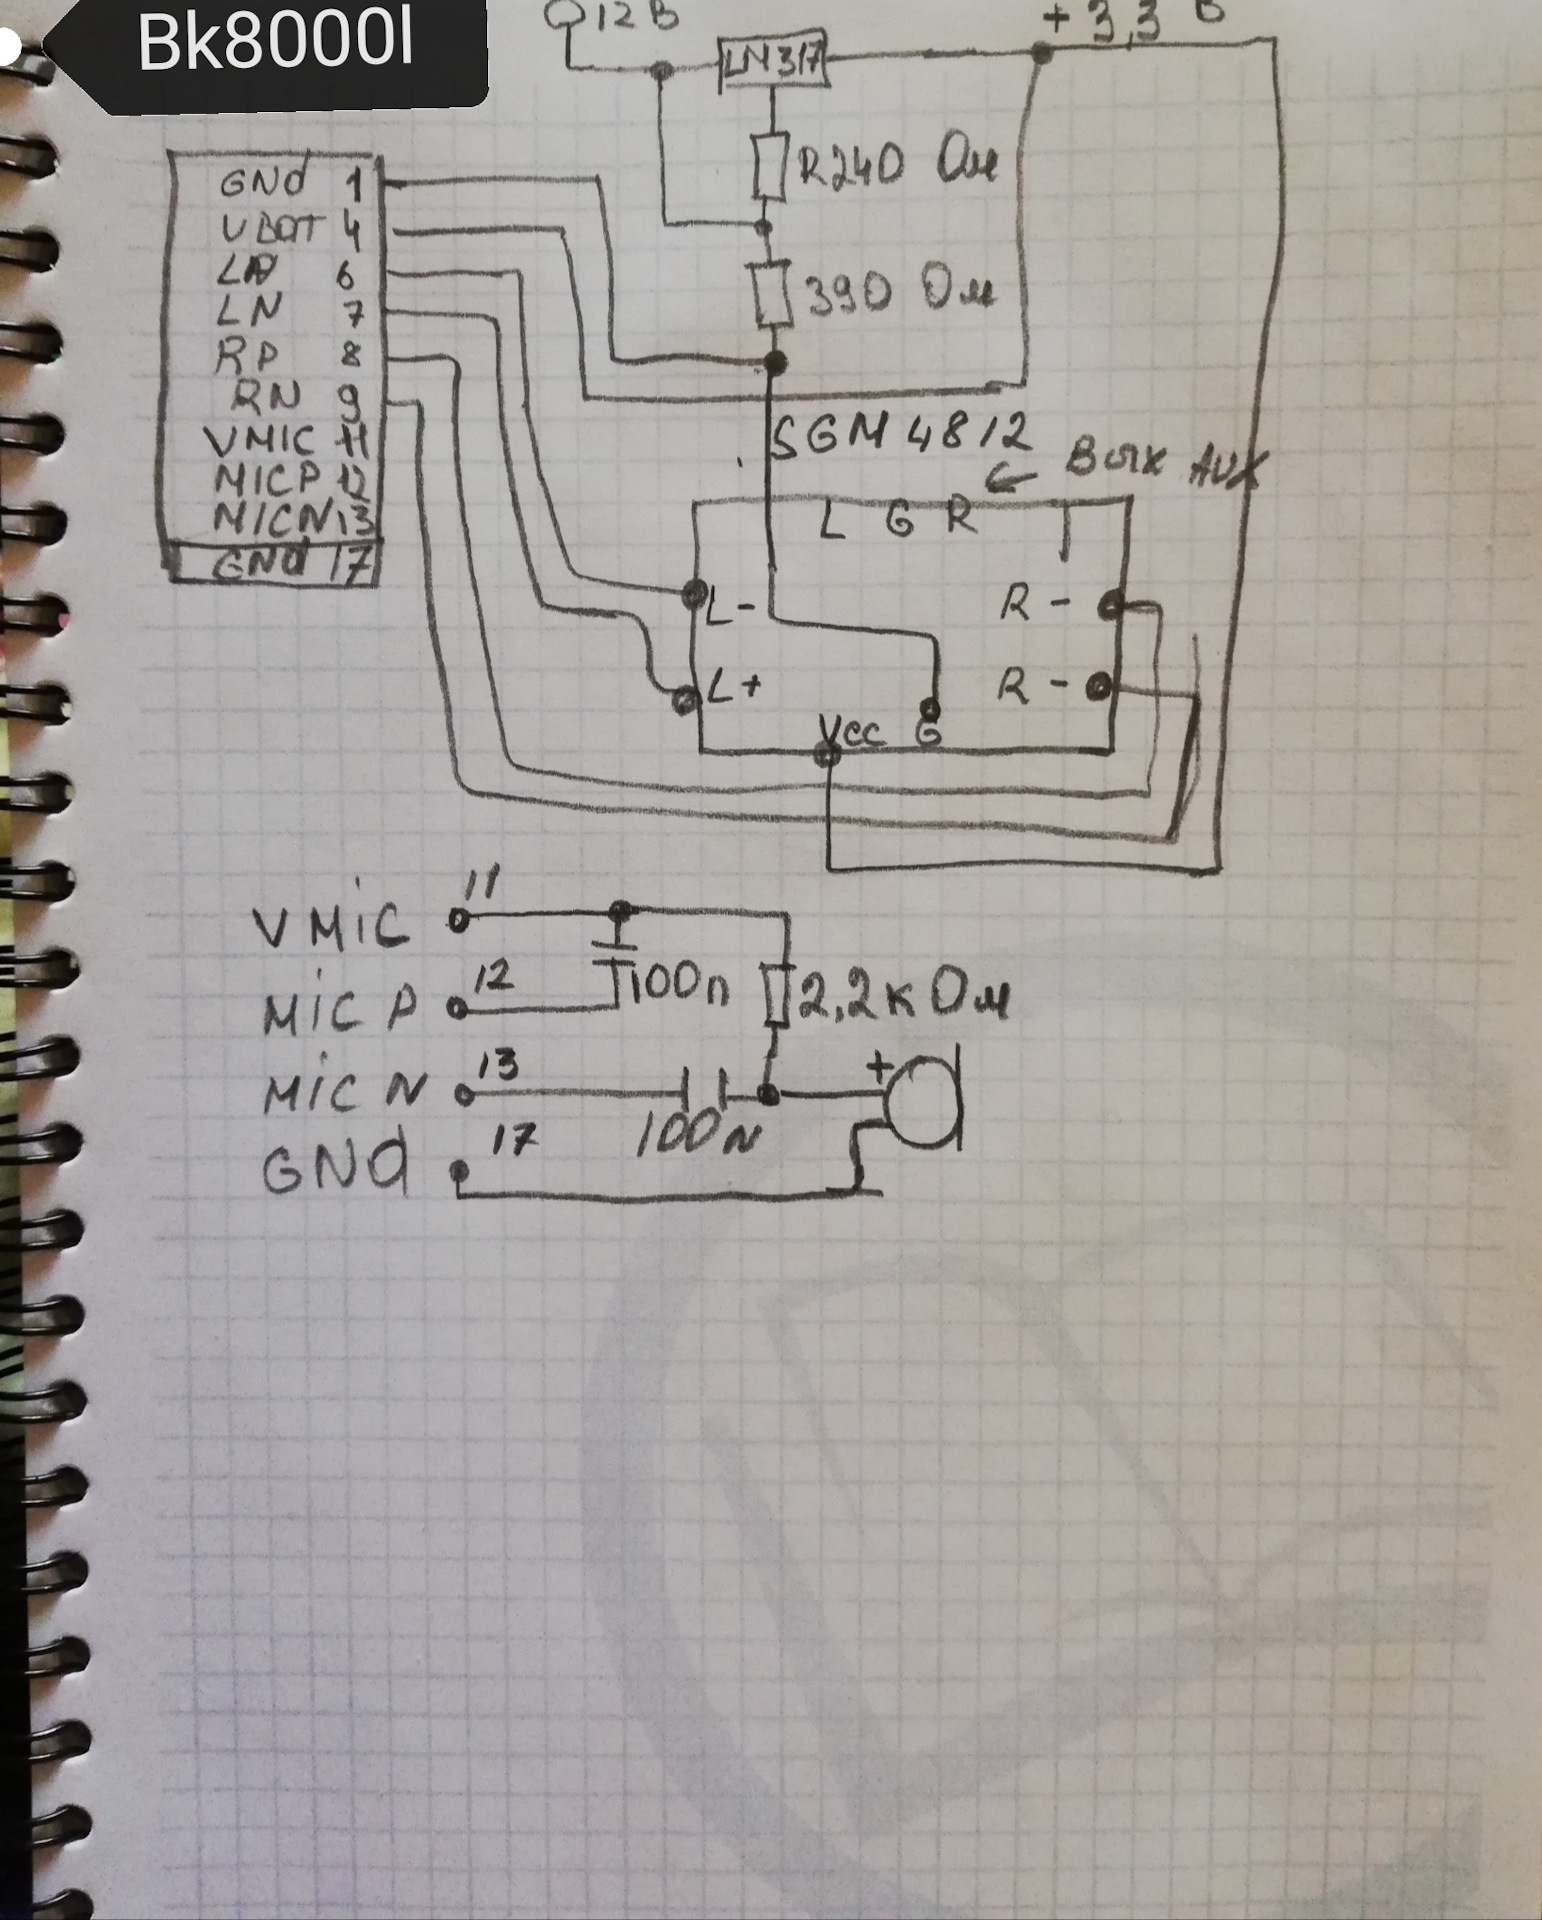 Bk8000l
12В
LM317
+3,3 В
R240 Ом
390 Ом
GNd 1
VBAT 4
LP 6
LN 7
RP 8
RN 9
VMIC 11
MICP 12
MICN 13
GNd 17
SGM 4812
← Вых AUX
L G R
L -
R -
L +
R -
Vcc G
VMiC 11
100n
2,2кОм
MiC P 12
MiC N 13
100N
+
GNd 17